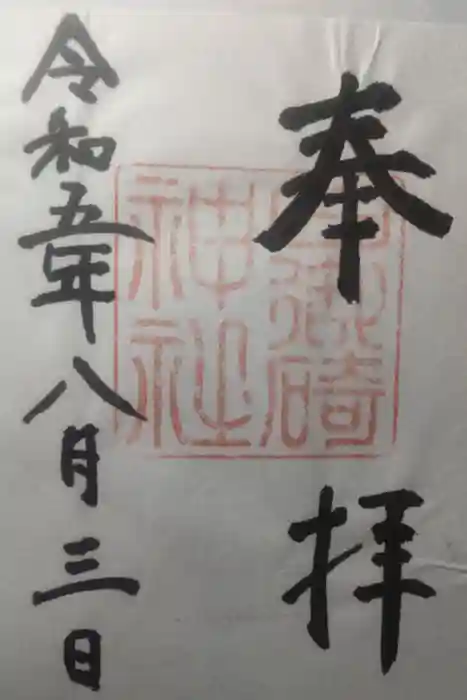 奉拝
神社
令和五年八月三日